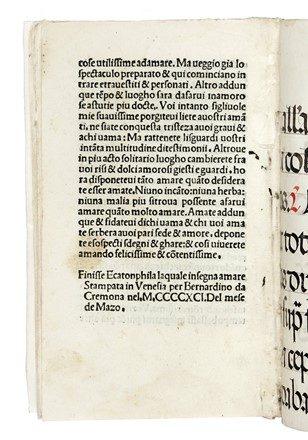 cose utilissime ad amare. Ma ueggio gia lo
spectaculo preparato & qui cominciano in
trare e trauestiti & personati. Altro addun
que tẽpo & luogho sara dasarui inamoro
se astutie piu docte. Voi intanto figliuole
mie suauissime porgiteui liete auostri amã
ti, ne siate con questa tristeza auoi graui &
achi uama: Ma rattenete lisguardi uostri in
intãta multitudine ditestimonii. Altroue
in piu acto solitario luogo cambierete fra
uoi risi & dolci amorosi giesti e guardi. ho
ra disponeteui tãto amare quãto desidera
te esser amate. Niuno incãto: niuna herba:
niuna malia piu sitroua possente afarui
amare quãto molto amare. Amate addun
que & fidateui dichi uama & chi uoi ama
te serbera auoi pari fede & amore. depone
te esospecti sdegni & ghare: & cosi uiuerete
amando felicissime & cõtentissime.
Finisse Ecatonphila laquale insegna amare
Stampata in Venesia per Bernardino da
Cremona nel, M, CCCCXCI. Del mese
de Mazo.
all'a